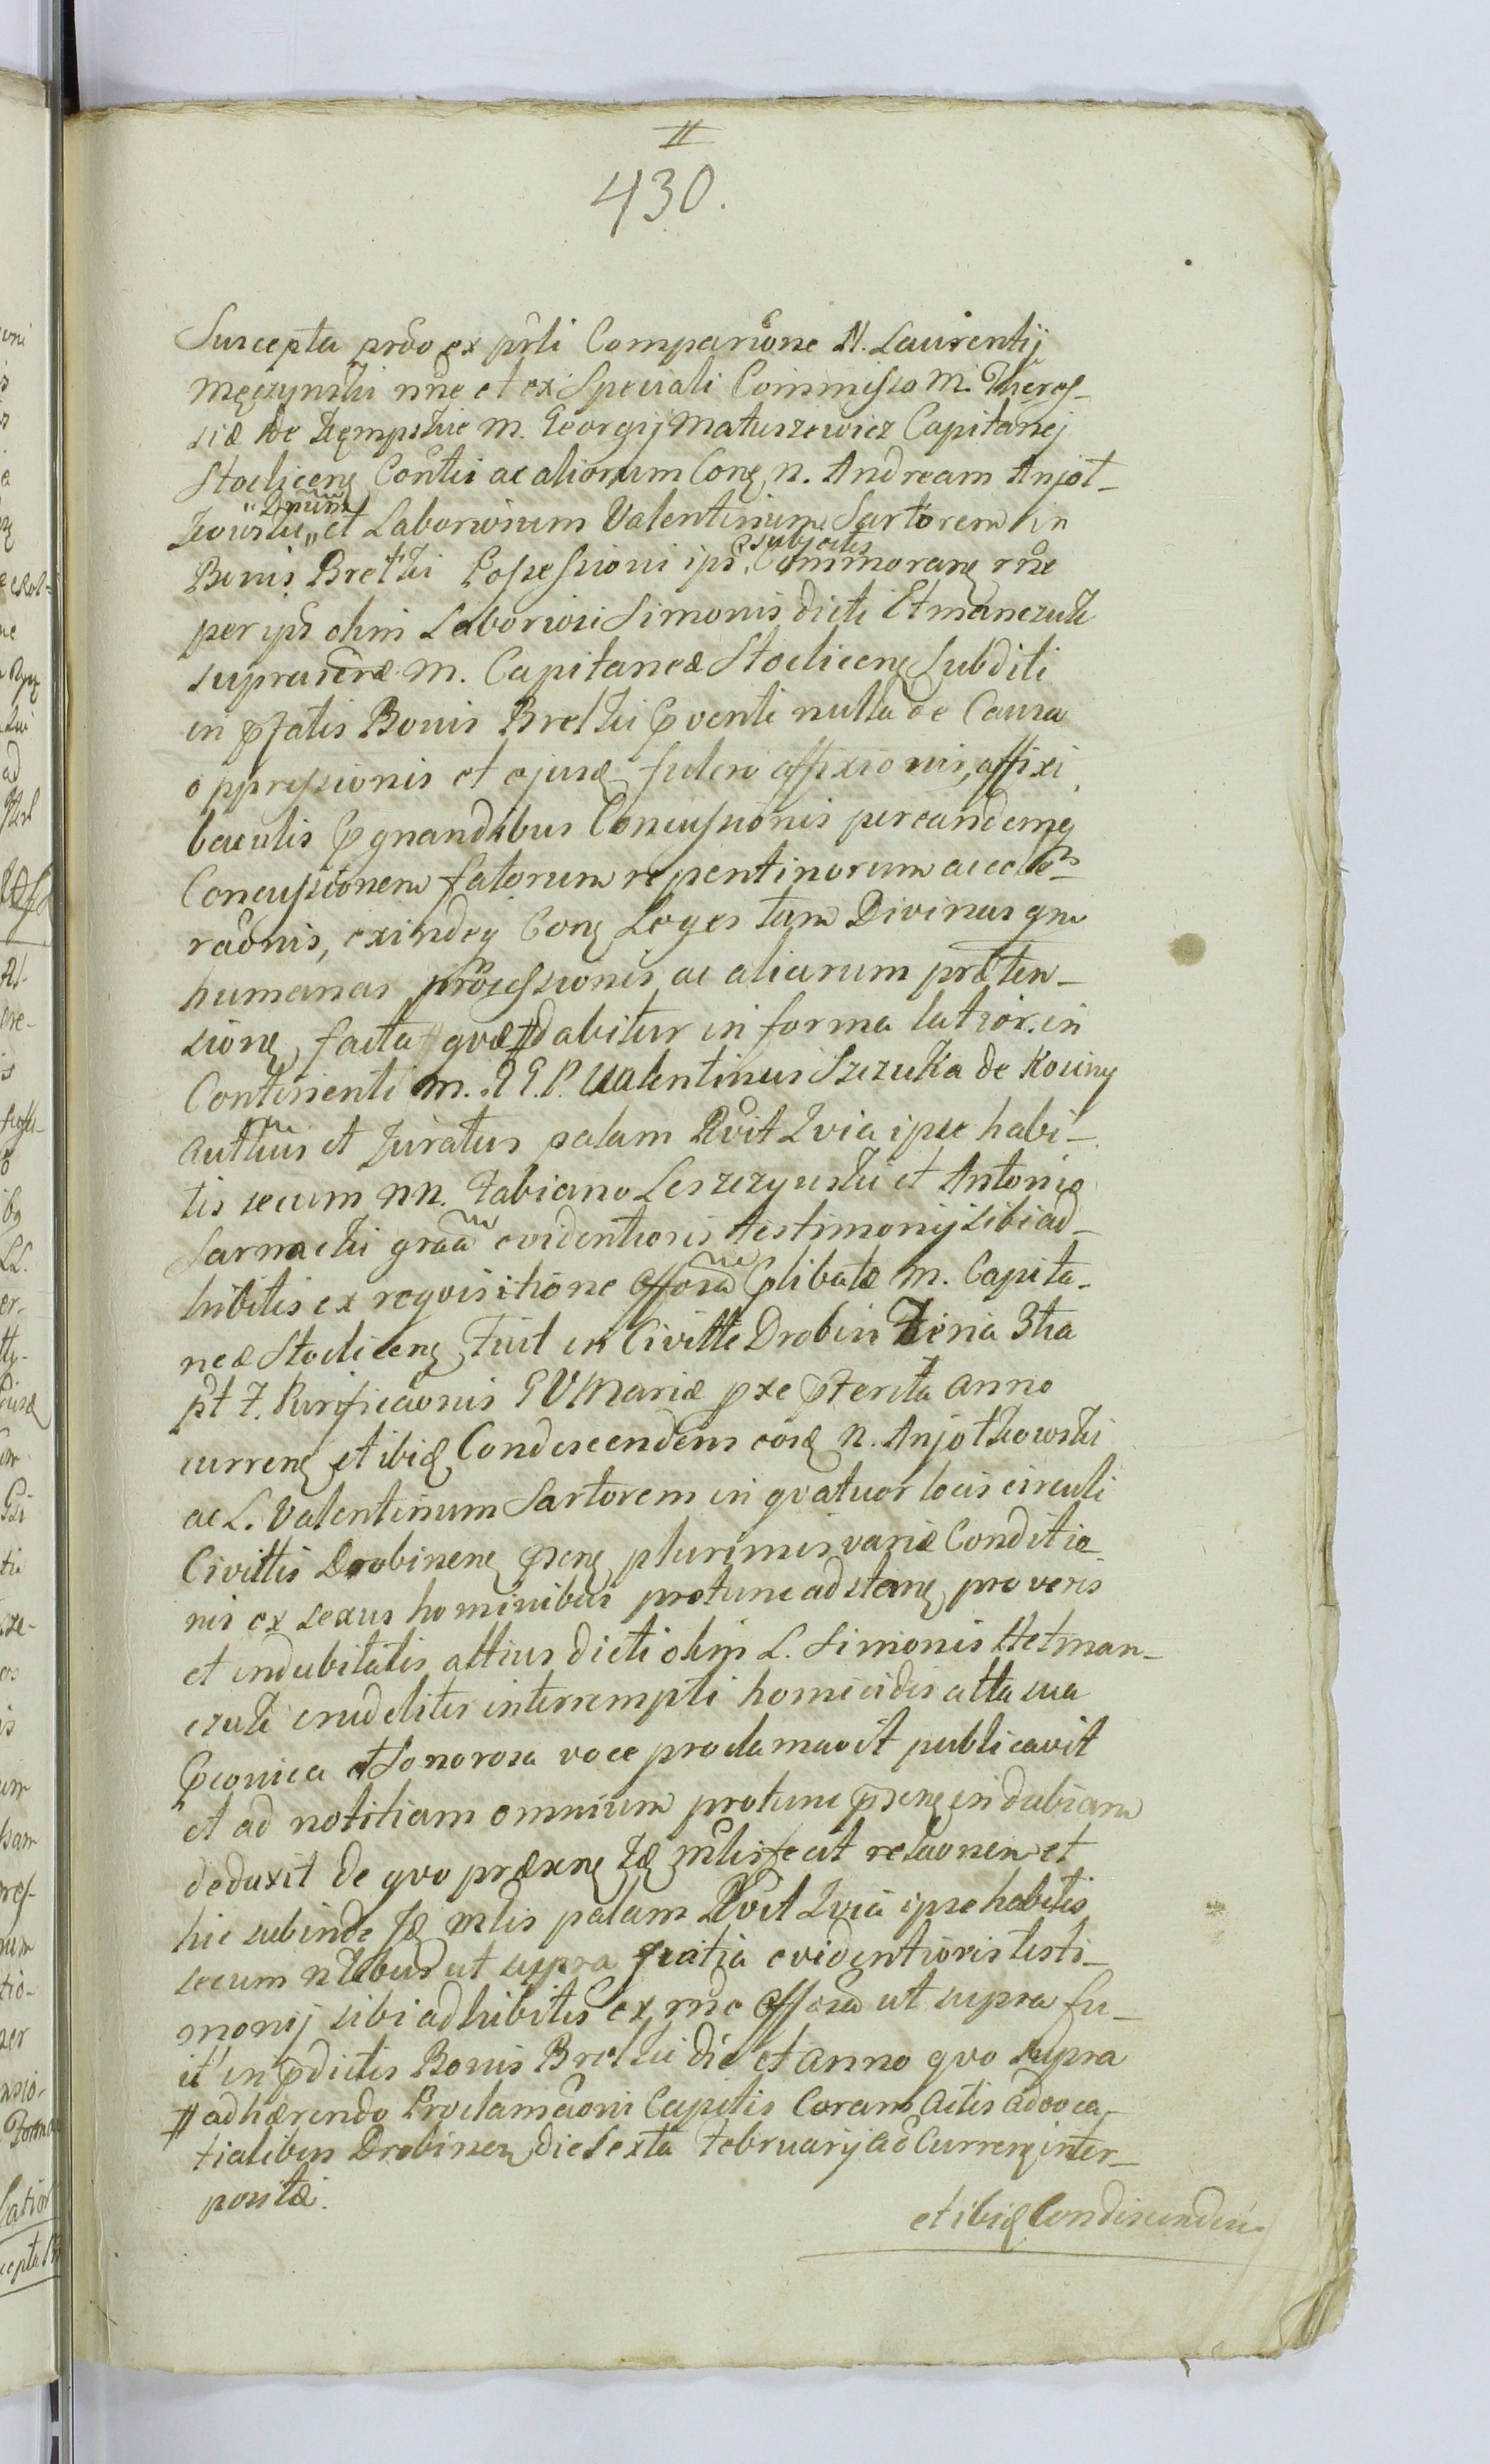 II
430.
Suscepta proõo ex pñli Comparñone N. Laurentij
Męczynski nñe et ex Speciali Commisso M. Theres-
siæ de Kępskie M. Georgij Matuszewicz Capitanej
Stocliceng Contis ac aliorum Cong N. Andream Anjot-
kowski „Dñum„ et Laboriosum Valentinum Sartorem in
Bonis Bretki Possessioni ips subjectis Commorang rñe
per ips olim Laboriosi Simonis dicti Etmanczuk
suprascræ M. Capitaneæ Stocliceng Subditi
in pfatis Bonis Bretki pventi nulla de Causa
oppressionis et ejusd fuleri affixionis, affixi
baculis pgnandibus Concussionis per eandemq
Concussionem fatorum repentinorum accele-
raõnis, exindeq Cong Leges tam Divinas qm
humanas processionis ac aliarum præten-
siong, facta quæ dabitur in forma latior. in
Continenti M. R G.P. Valentinus Szczuka de Kosiny
Autthus et Juratus palam Rvit Qvia ipse habi-
tis secum NN. Fabiano Leszczynski et Antonio
Sarnacki graa evidentioris testimonij sibi ad-
hibitis ex reqvisitione Offosa plibatæ M. Capita-
neæ Stocliceng Fuit in Civitte Drobin Feria 3tia
pt F. Purificaõnis G V Mariæ pxe pterita Anno
curreng et ibid Condescendens eosd N. Anjotkowski
ac L. Valentinum Sartorem in qvatuor locis circuli
Civittis Drobineng pseng plurimis variæ Conditio-
nis ex sexus hominibus protunc adstang pro veris
et indubitatis attius dicti olim L. Simonis Hetman-
czuk crudeliter interrempti homicidis alta sua
pconica et Sonorosa voce proclamavit publicavit
et ad notitiam omnium protunc pseng indubiam
deduxit de qvo præseng Jd mlis fecit relaonem et
hic subinde Jd mlis palam Rvit Qvia ipse habitis
secum nlibus ut supra gratia evidentioris testi-
monij sibi adhibitis ex rñe Offosa ut supra fu-
it in pdictis Bonis Bretki die et Anno qvo supra
# adhærendo Proclamaoni Capitis Coram Actis advoca-
tialibus Drobinen, die Sexta Februarij ao Curreng inter-
positæ.
et ibid Condescendens